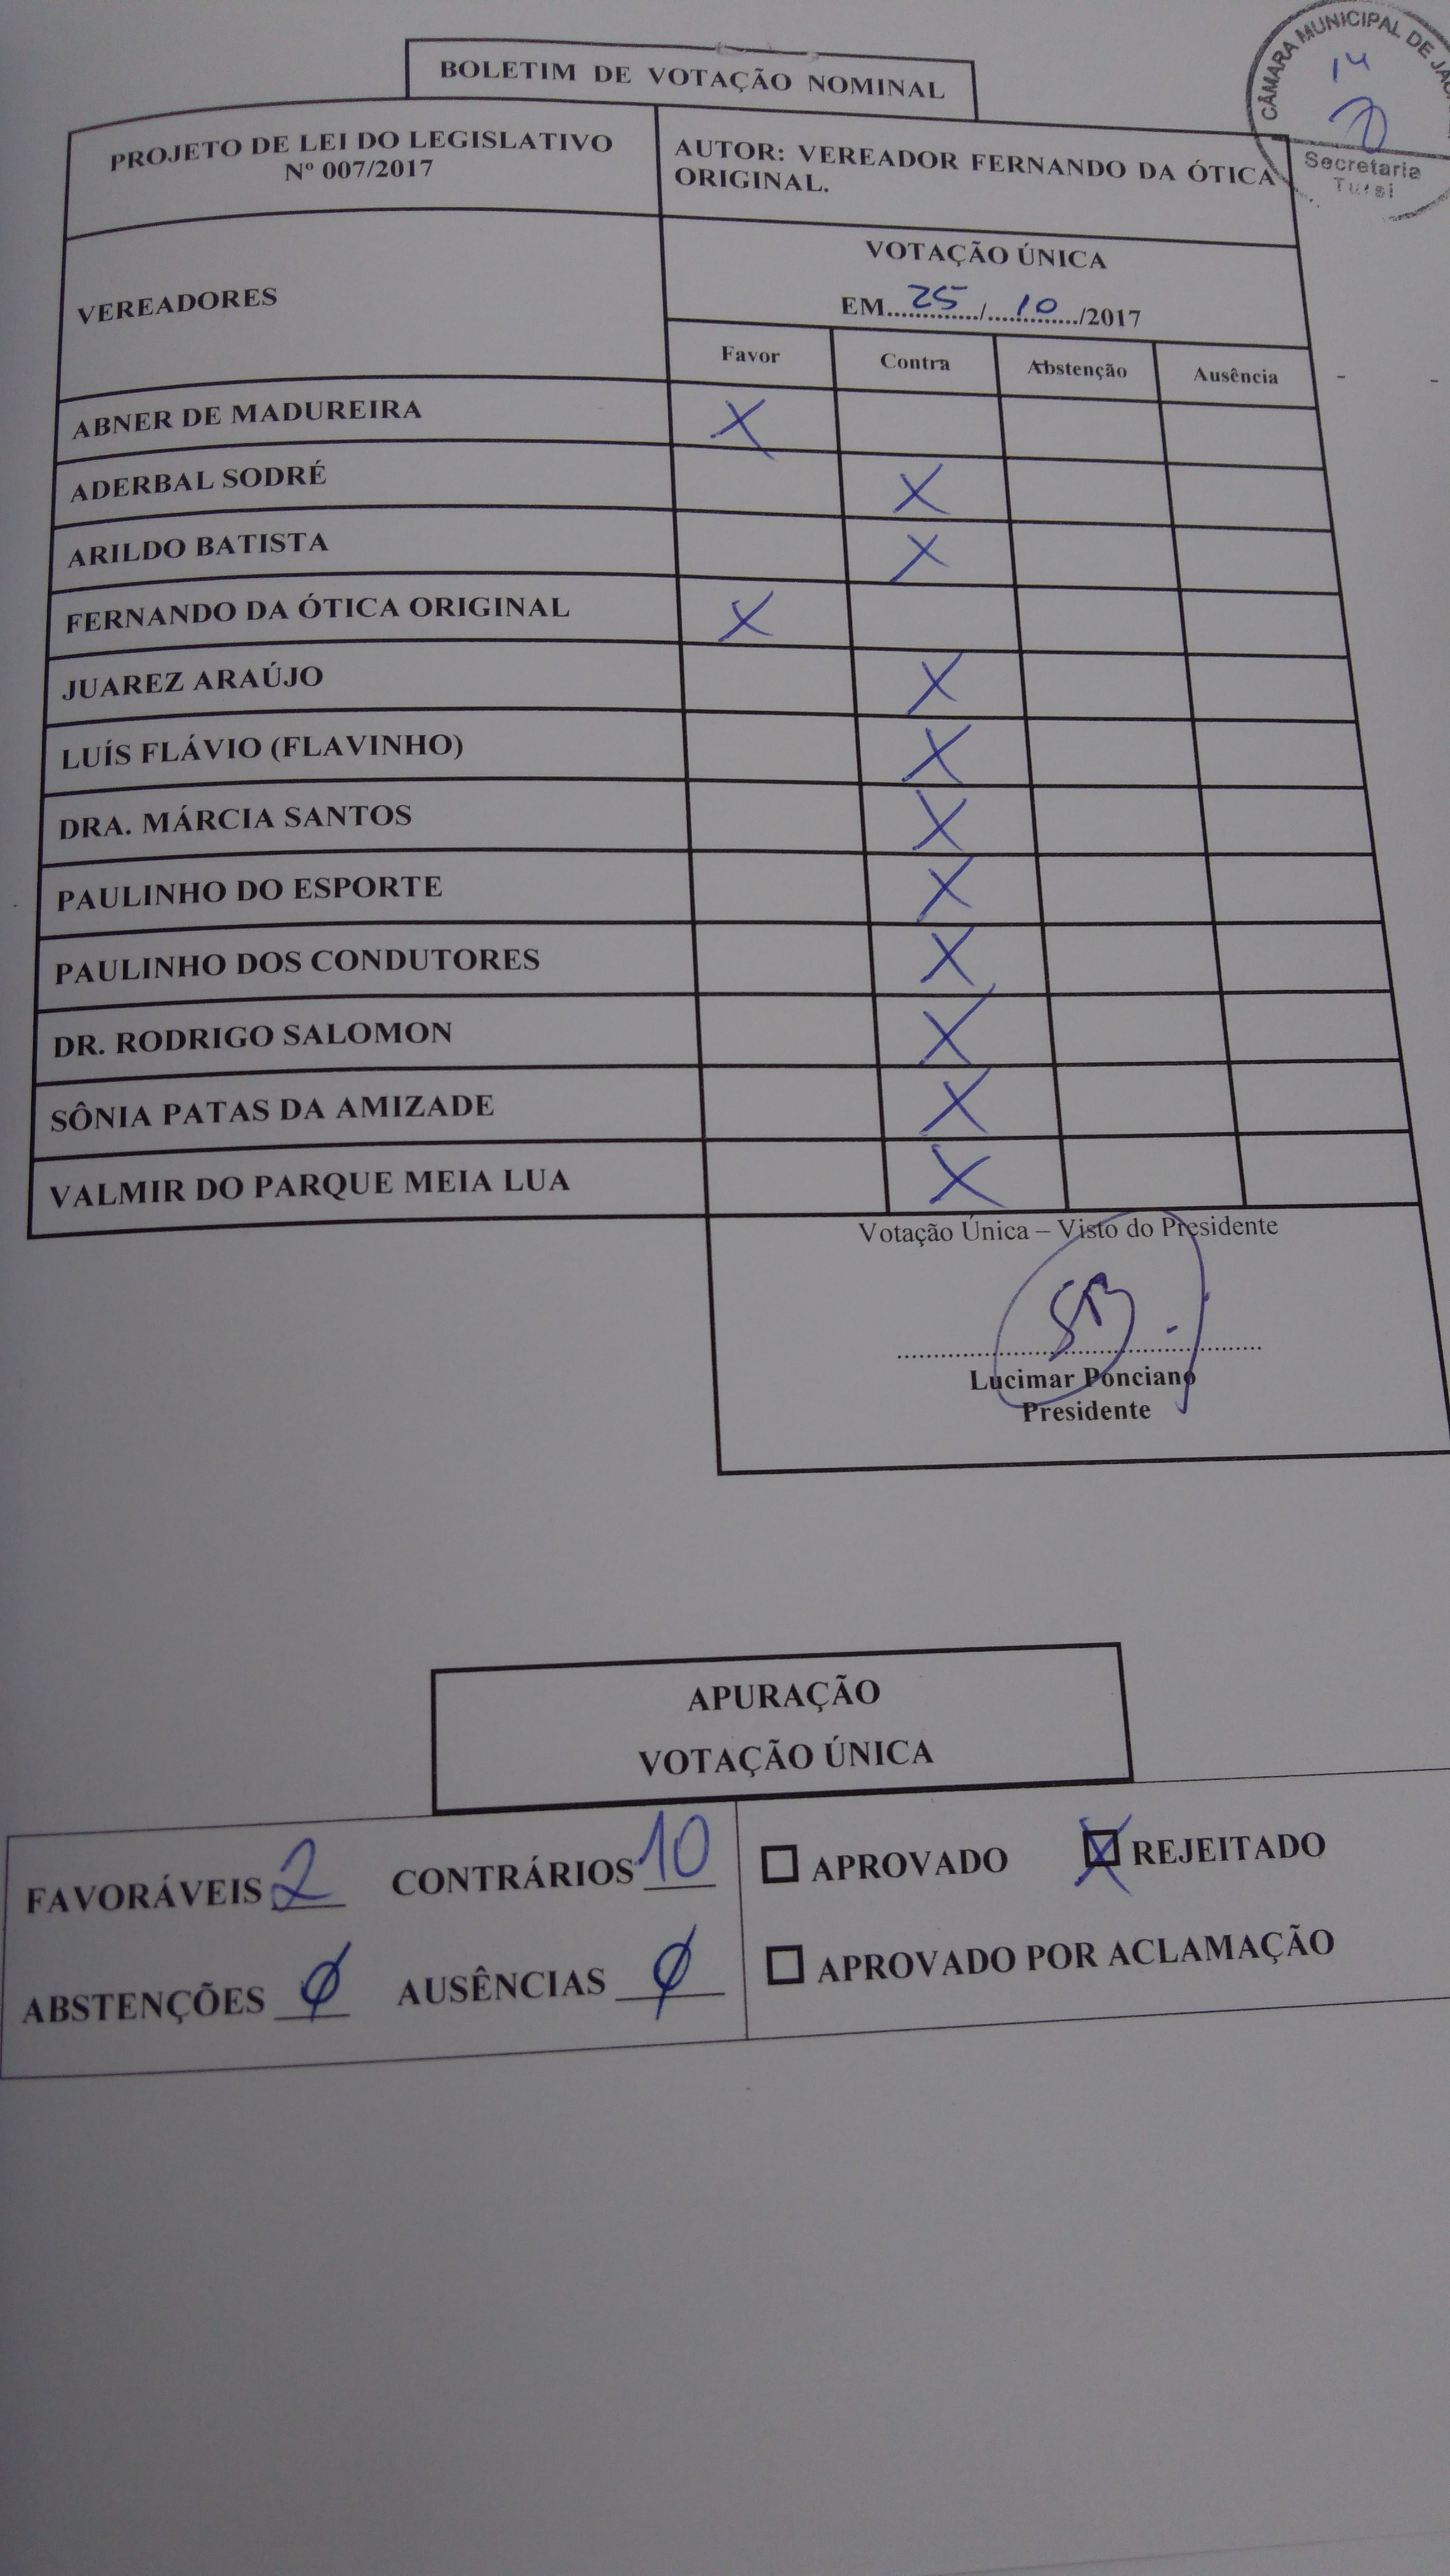 BOLETIM DE VOTAÇÃO NOMINAL
CÂMARA MUNICIPAL DE
14
Secretaria
PROJETO DE LEI DO LEGISLATIVO
Nº 007/2017
AUTOR: VEREADOR FERNANDO DA ÓTICA
ORIGINAL.
VEREADORES
VOTAÇÃO ÚNICA
EM 25 / 10 /2017
Favor Contra Abstenção Ausência
ABNER DE MADUREIRA X
ADERBAL SODRÉ X
ARILDO BATISTA X
FERNANDO DA ÓTICA ORIGINAL X
JUAREZ ARAÚJO X
LUÍS FLÁVIO (FLAVINHO) X
DRA. MÁRCIA SANTOS X
PAULINHO DO ESPORTE X
PAULINHO DOS CONDUTORES X
DR. RODRIGO SALOMON X
SÔNIA PATAS DA AMIZADE X
VALMIR DO PARQUE MEIA LUA X
Votação Única – Visto do Presidente
Lucimar Ponciano
Presidente
APURAÇÃO
VOTAÇÃO ÚNICA
FAVORÁVEIS 2 CONTRÁRIOS 10
ABSTENÇÕES Ø AUSÊNCIAS Ø
☐ APROVADO ☒ REJEITADO
☐ APROVADO POR ACLAMAÇÃO